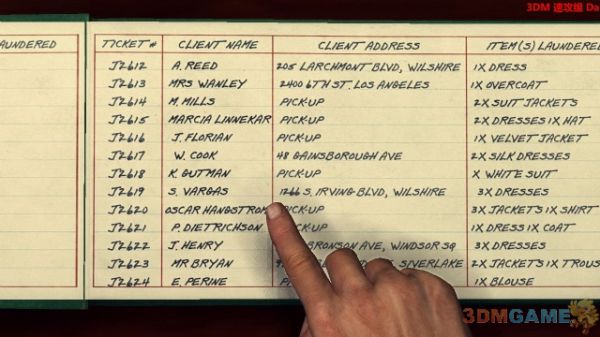 3DM 速攻组 Da
AUNDERED TICKET# CLIENT NAME CLIENT ADDRESS ITEM(S) LAUNDERED
J2612 A. REED 205 LARCHMONT BLVD, WILSHIRE 1X DRESS
J2613 MRS WANLEY 2400 6TH ST. LOS ANGELES 1X OVERCOAT
J2614 M. MILLS PICK-UP 2X SUIT JACKETS
J2615 MARCIA LINNEKAR PICK-UP 2X DRESSES 1X HAT
J2616 J. FLORIAN PICK-UP 1X VELVET JACKET
J2617 W. COOK 48 GAINSBOROUGH AVE 2X SILK DRESSES
J2618 K. GUTMAN PICK-UP X WHITE SUIT
J2619 S. VARGAS 1266 S. IRVING BLVD, WILSHIRE 3X DRESSES
J2620 OSCAR HANGSTROM PICK-UP 3X JACKETS 1X SHIRT
J2621 P. DIETRICHSON PICK-UP 1X DRESS 1X COAT
J2622 J. HENRY BRONSON AVE, WINDSOR SQ 3X DRESSES
J2623 MR BRYAN SIVERLAKE 2X JACKETS 1X TROUS
J2624 E. PERINE 1X BLOUSE
3DMGAME